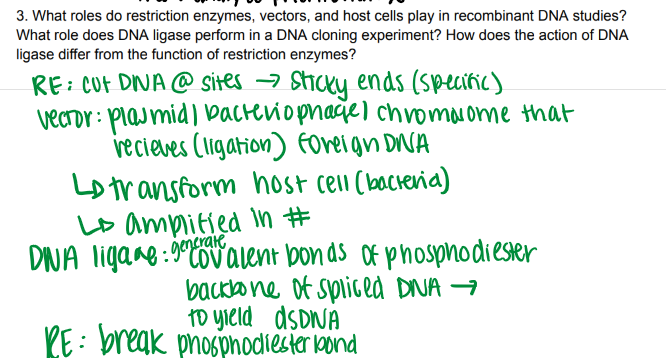 3. What roles do restriction enzymes, vectors, and host cells play in recombinant DNA studies?
What role does DNA ligase perform in a DNA cloning experiment? How does the action of DNA
ligase differ from the function of restriction enzymes?
RE: cut DNA @ sites → sticky ends (specific)
vector: plasmid | bacteriophage | chromosome that
recieves (ligation) foreign DNA
↳ transform host cell (bacteria)
↳ amplified in #
DNA ligase: generate covalent bonds of phosphodiester
backbone of spliced DNA →
to yield dsDNA
RE: break phosphodiester bond